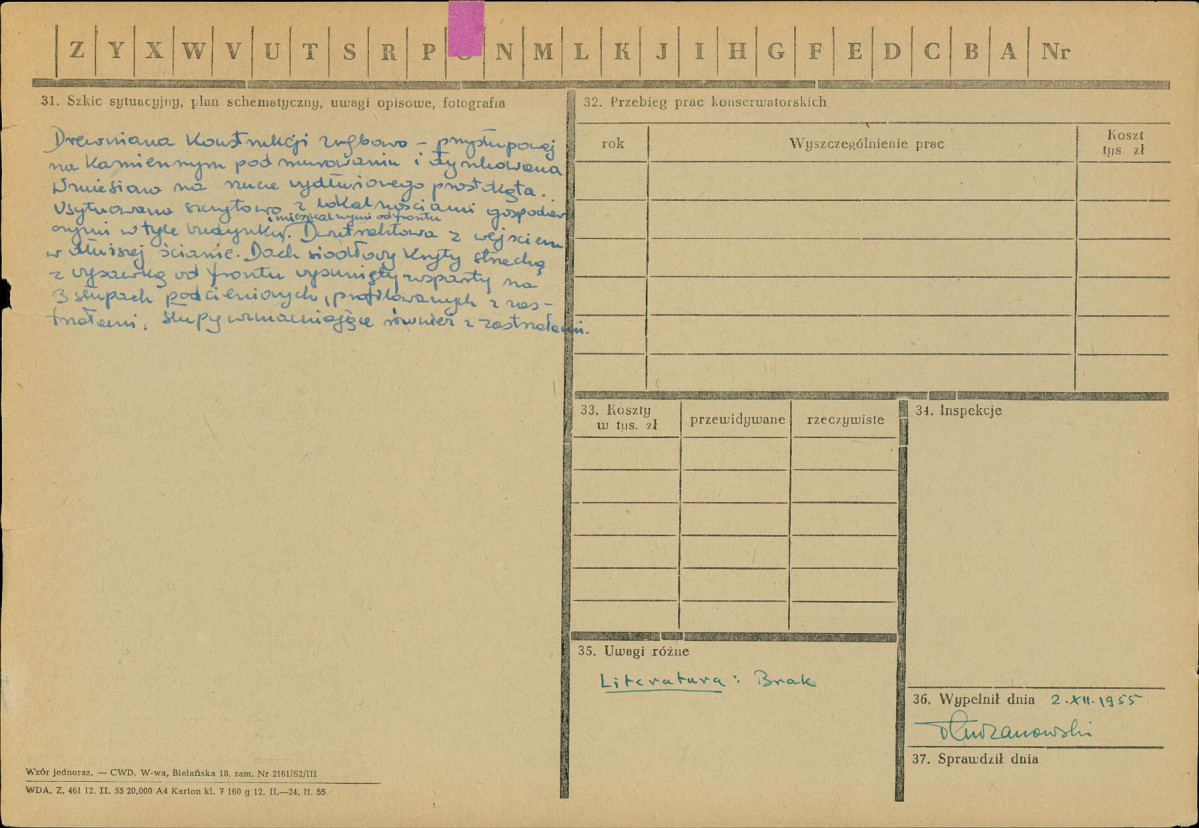 Z Y X W V U T S R P O N M L K J I H G F E D C B A Nr
31. Szkic sytuacyjny, plan schematyczny, uwagi opisowe, fotografia
Drewniana konstrukcji zrębowo - przysłupowej
na kamiennym podmurowaniu i tynkowana
Wniesiano na rzucie wydłużonego prostokąta.
Usytuowana szczytowo z lokalnościami gospodar
i mieszkalnymi od frontu
czymi w tyle budynku. Dwutraktowa z wejściem
w dłuższej ścianie. Dach siodłowy kryty strzechą
z wystawką od frontu wysunięty wsparty na
3 słupach podcieniowych, profilowanych z zas-
trzałami. Słupy wzmacniające również z zastrzałami.
32. Przebieg prac konserwatorskich
rok
Wyszczególnienie prac
Koszt
tys. zł
33. Koszty
w tys. zł
przewidywane
rzeczywiste
34. Inspekcje
35. Uwagi różne
Literatura: Brak
36. Wypełnił dnia 2.XII.1955
37. Sprawdził dnia
Wzór jednoraz. — CWD, W-wa, Bielańska 18, zam. Nr 2161/S2/III
WDA. Z. 461 12. II. 55 20,000 A4 Karton kl. 7 160 g 12. II.—24. II. 55